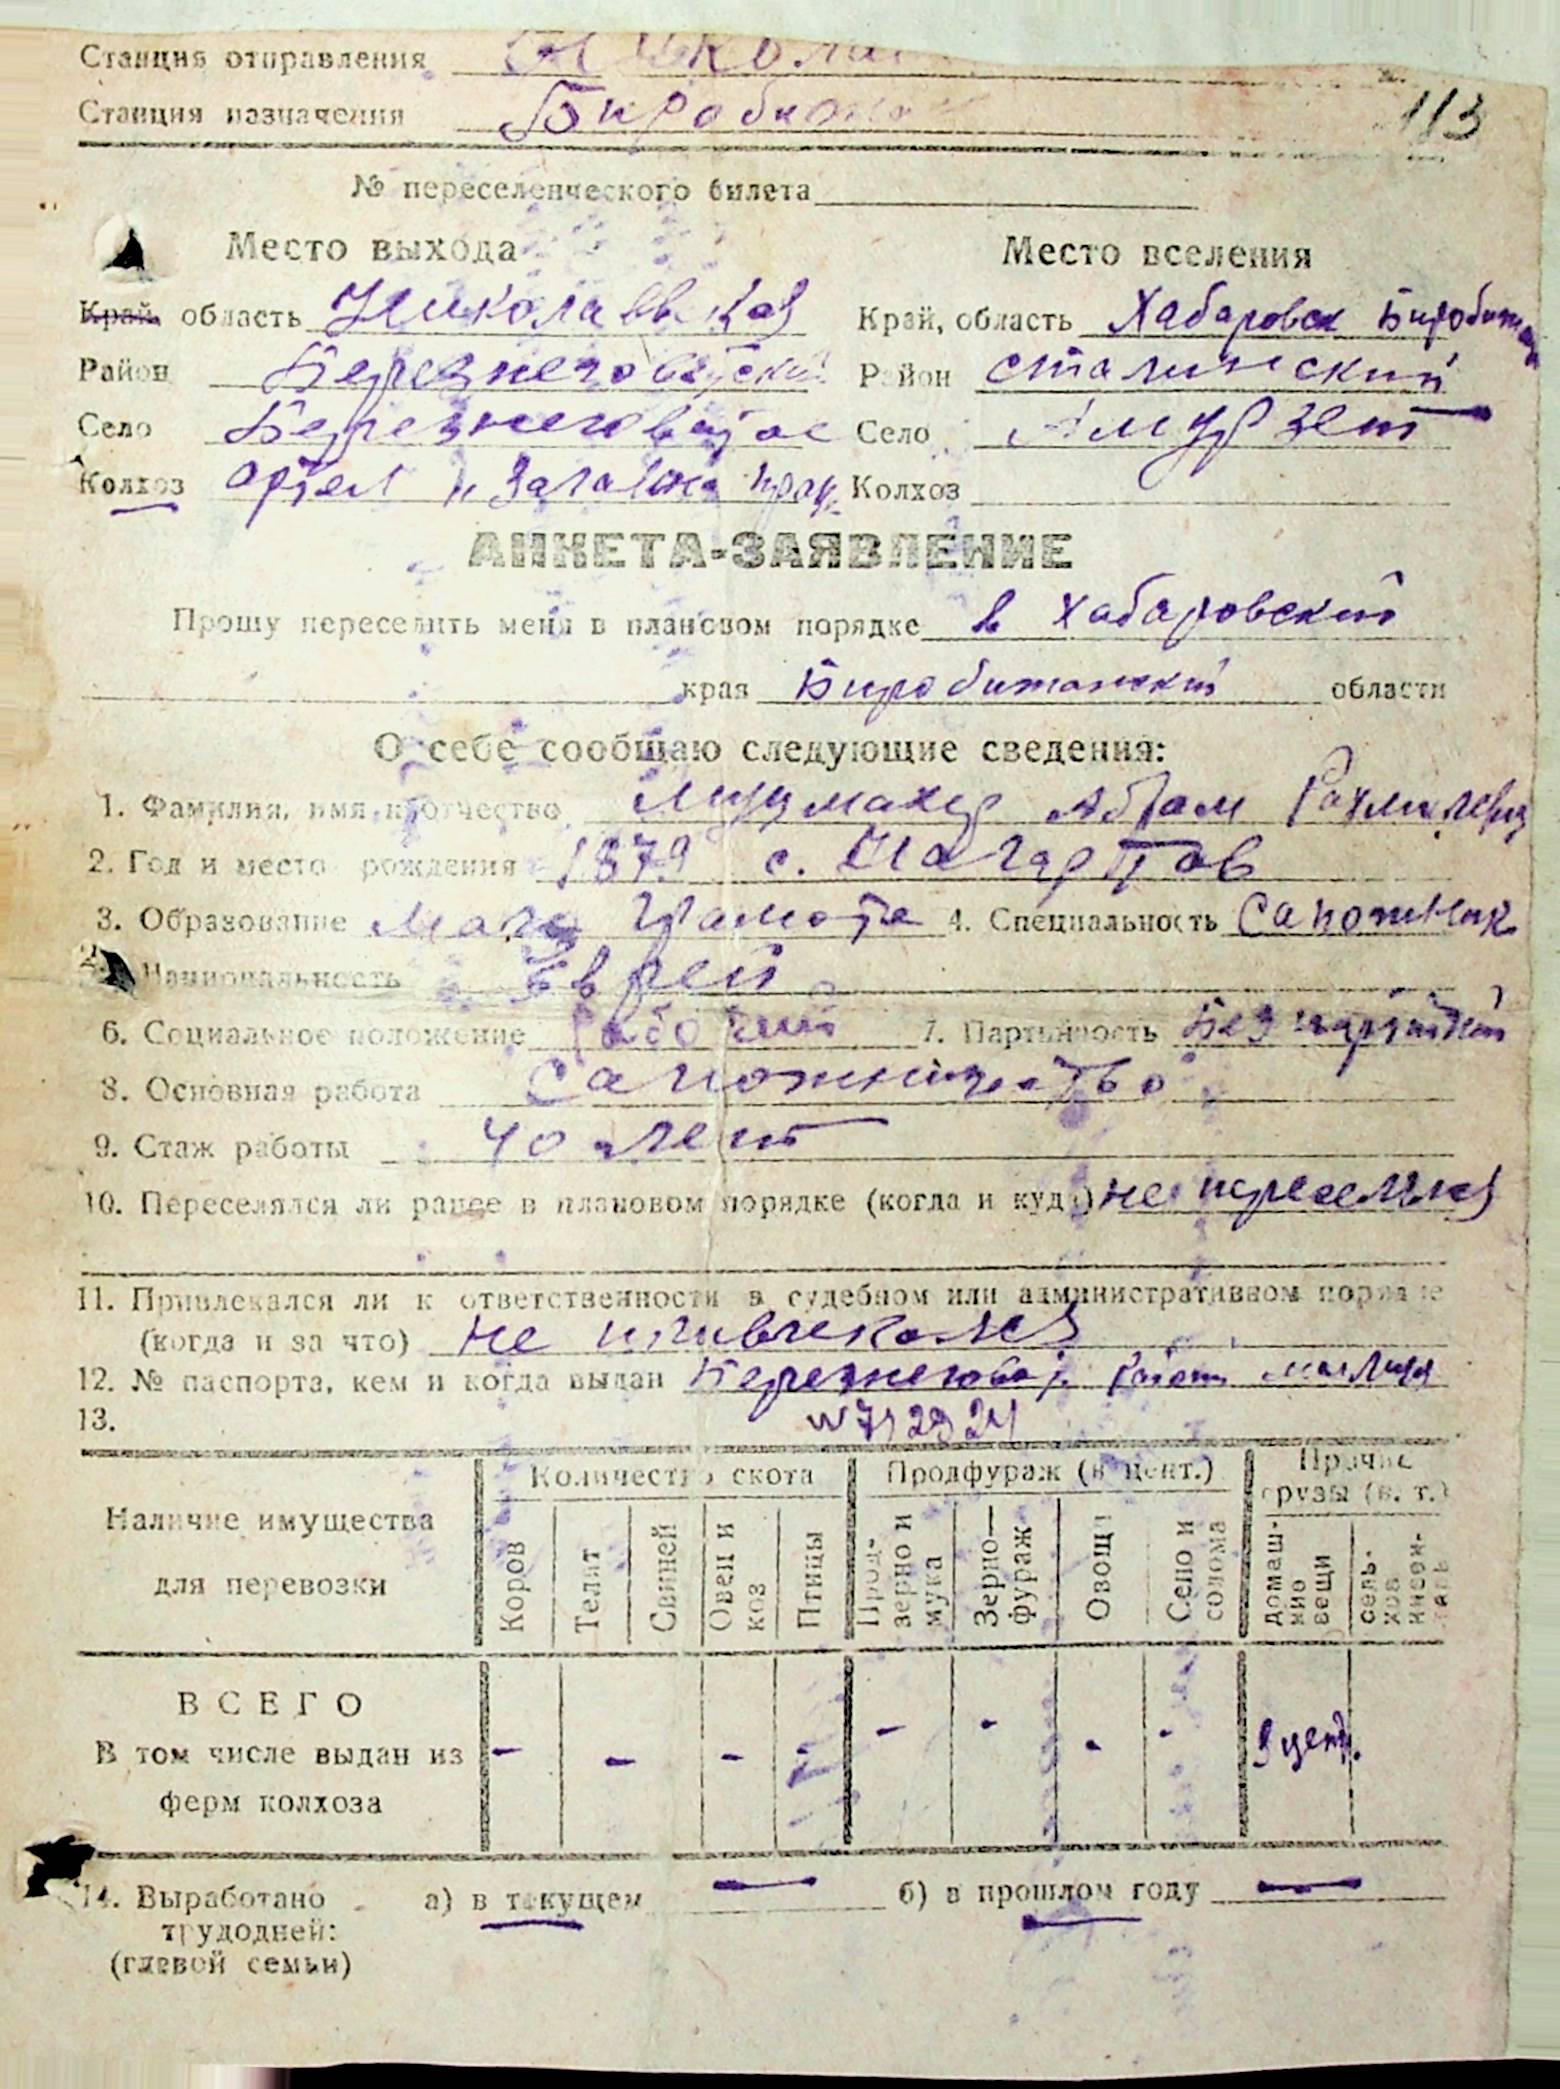 Станция отправления Никола
Станция назначения Биробиджан
113
№ переселенческого билета
Место выхода Место вселения
Край, область Николаевская Край, область Хабаровск Биробиджан
Район Березнеговатский Район Сталинский
Село Березнеговатое Село Амурзет
Колхоз артел Колхоз
АНКЕТА-ЗАЯВЛЕНИЕ
Прошу переселить меня в плановом порядке в Хабаровский
края Биробиджанский области
О себе сообщаю следующие сведения:
1. Фамилия, имя и отчество Абрам Рахмилевич
2. Год и место рождения 1879 с. Нагартов
3. Образование Мало грамоте 4. Специальность Сапожник
Национальность Еврей
6. Социальное положение Рабочий 7. Партийность Без партийный
8. Основная работа Сапожничество
9. Стаж работы 40 лет
10. Переселялся ли ранее в плановом порядке (когда и куда) не переселялся
11. Привлекался ли к ответственности в судебном или административном порядке
(когда и за что) не привлекался
12. № паспорта, кем и когда выдан Березнеговат.
13.
Количество скота Продфураж (в цент.) Прочие грузы (в. т.)
Наличие имущества
для перевозки
Коров Телят Свиней Овец и коз Птицы Прод-зерно и мука Зерно—фураж Овощи Сено и солома домаш-ние вещи сель-хоз инвен-тарь
ВСЕГО
В том числе выдан из
ферм колхоза
- - - - - - - - 3 цент.
14. Выработано а) в текущем — б) в прошлом году —
трудодней:
(главой семьи)